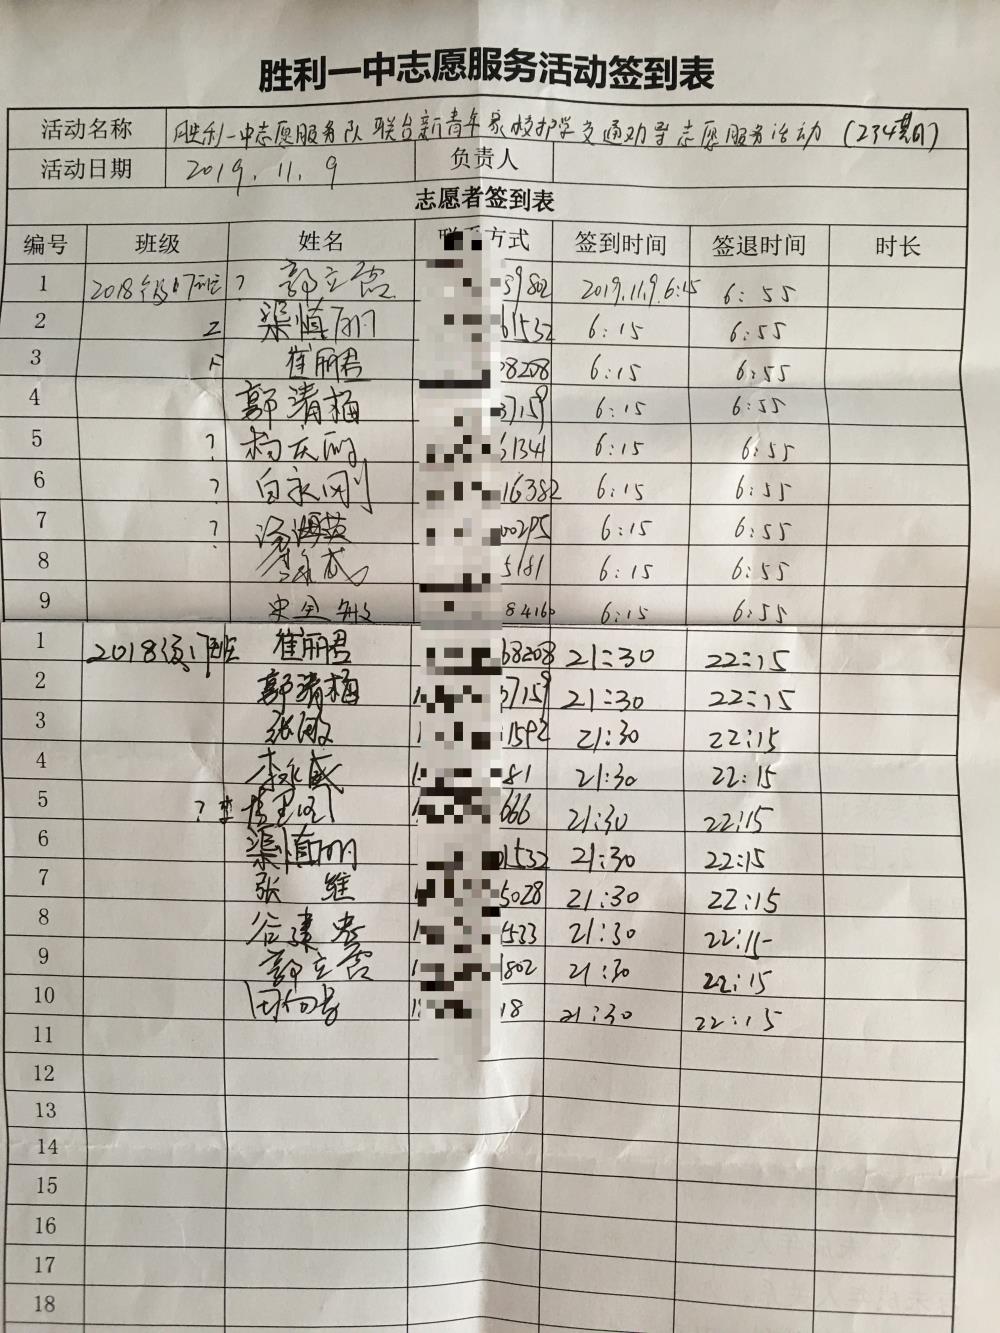 胜利一中志愿服务活动签到表
活动名称 胜利一中志愿服务队联合新青年家校护学交通劝导志愿服务活动(234期)
活动日期 2019.11.9 负责人
志愿者签到表
编号 班级 姓名 方式 签到时间 签退时间 时长
1 2018级17班 ? 郭立霞 39802 2019.11.9.6:15 6:55
2 渠慎丽 61532 6:15 6:55
3 崔丽君 08208 6:15 6:55
4 郭清梅 37159 6:15 6:55
5 ? 61341 6:15 6:55
6 ? 白永刚 16382 6:15 6:55
7 ? 00295 6:15 6:55
8 李永威 5181 6:15 6:55
9 84160 6:15 6:55
1 2018级17班 崔丽君 68208 21:30 22:15
2 郭清梅 37159 21:30 22:15
3 张敏 1592 21:30 22:15
4 李永威 81 21:30 22:15
5 ? 666 21:30 22:15
6 渠慎丽 01532 21:30 22:15
7 张维 5028 21:30 22:15
8 谷 533 21:30 22:15
9 郭立霞 1802 21:30 22:15
10 18 21:30 22:15
11
12
13
14
15
16
17
18